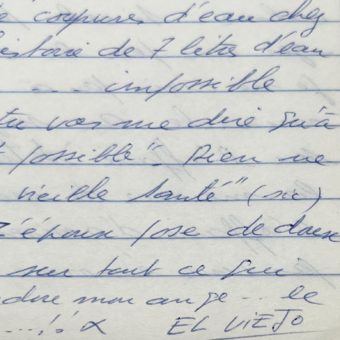 coupures d'eau chez
histoire de 7 litres d'eau
.... impossible
tu vas me dire qu'à
possible". Rien ne
vieille santé" (sic)
pose de
sur tout ce qui
mon ange... le
...!! EL VIEJO